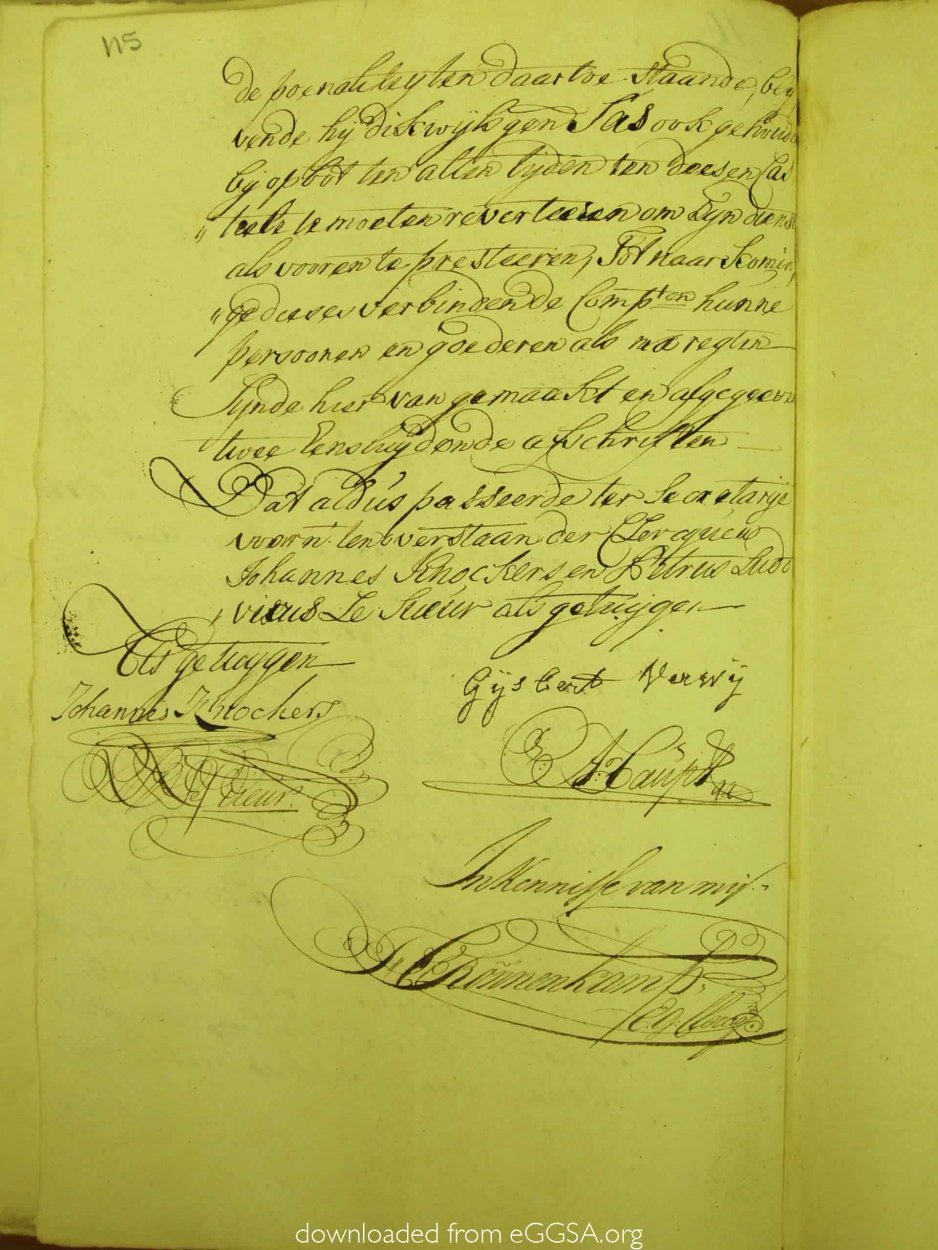 115
de poenaliteyten daartoe staande, bly
vende hij dikwijls gen. Sas ook gehoude
bij opbot ten allen tyden ten deesen Cas
„ teele te moeten reverteeren om Zyn dienst
als vooren te presteeren, Tot naar komin
„ ge deeses verbindende Comp.ten hunne
persoonen en goederen als na regten
Sijnde hier van gemaakt en afgegeeven
twee Eensluijdende afschriften
Dat aldus passeerde ter Secretarije
voorn: ten overstaan der Clercquen
Johannes Knockers, en Petrus Ludo
„ vicus Le Sueur als getuijgen
Als getuygen
Johannes Knockers
Sueur.
Gijsbert Verwij
In Kennisse van mij
Rönnenkamp
E. g. Clercq
downloaded from eGGSA.org